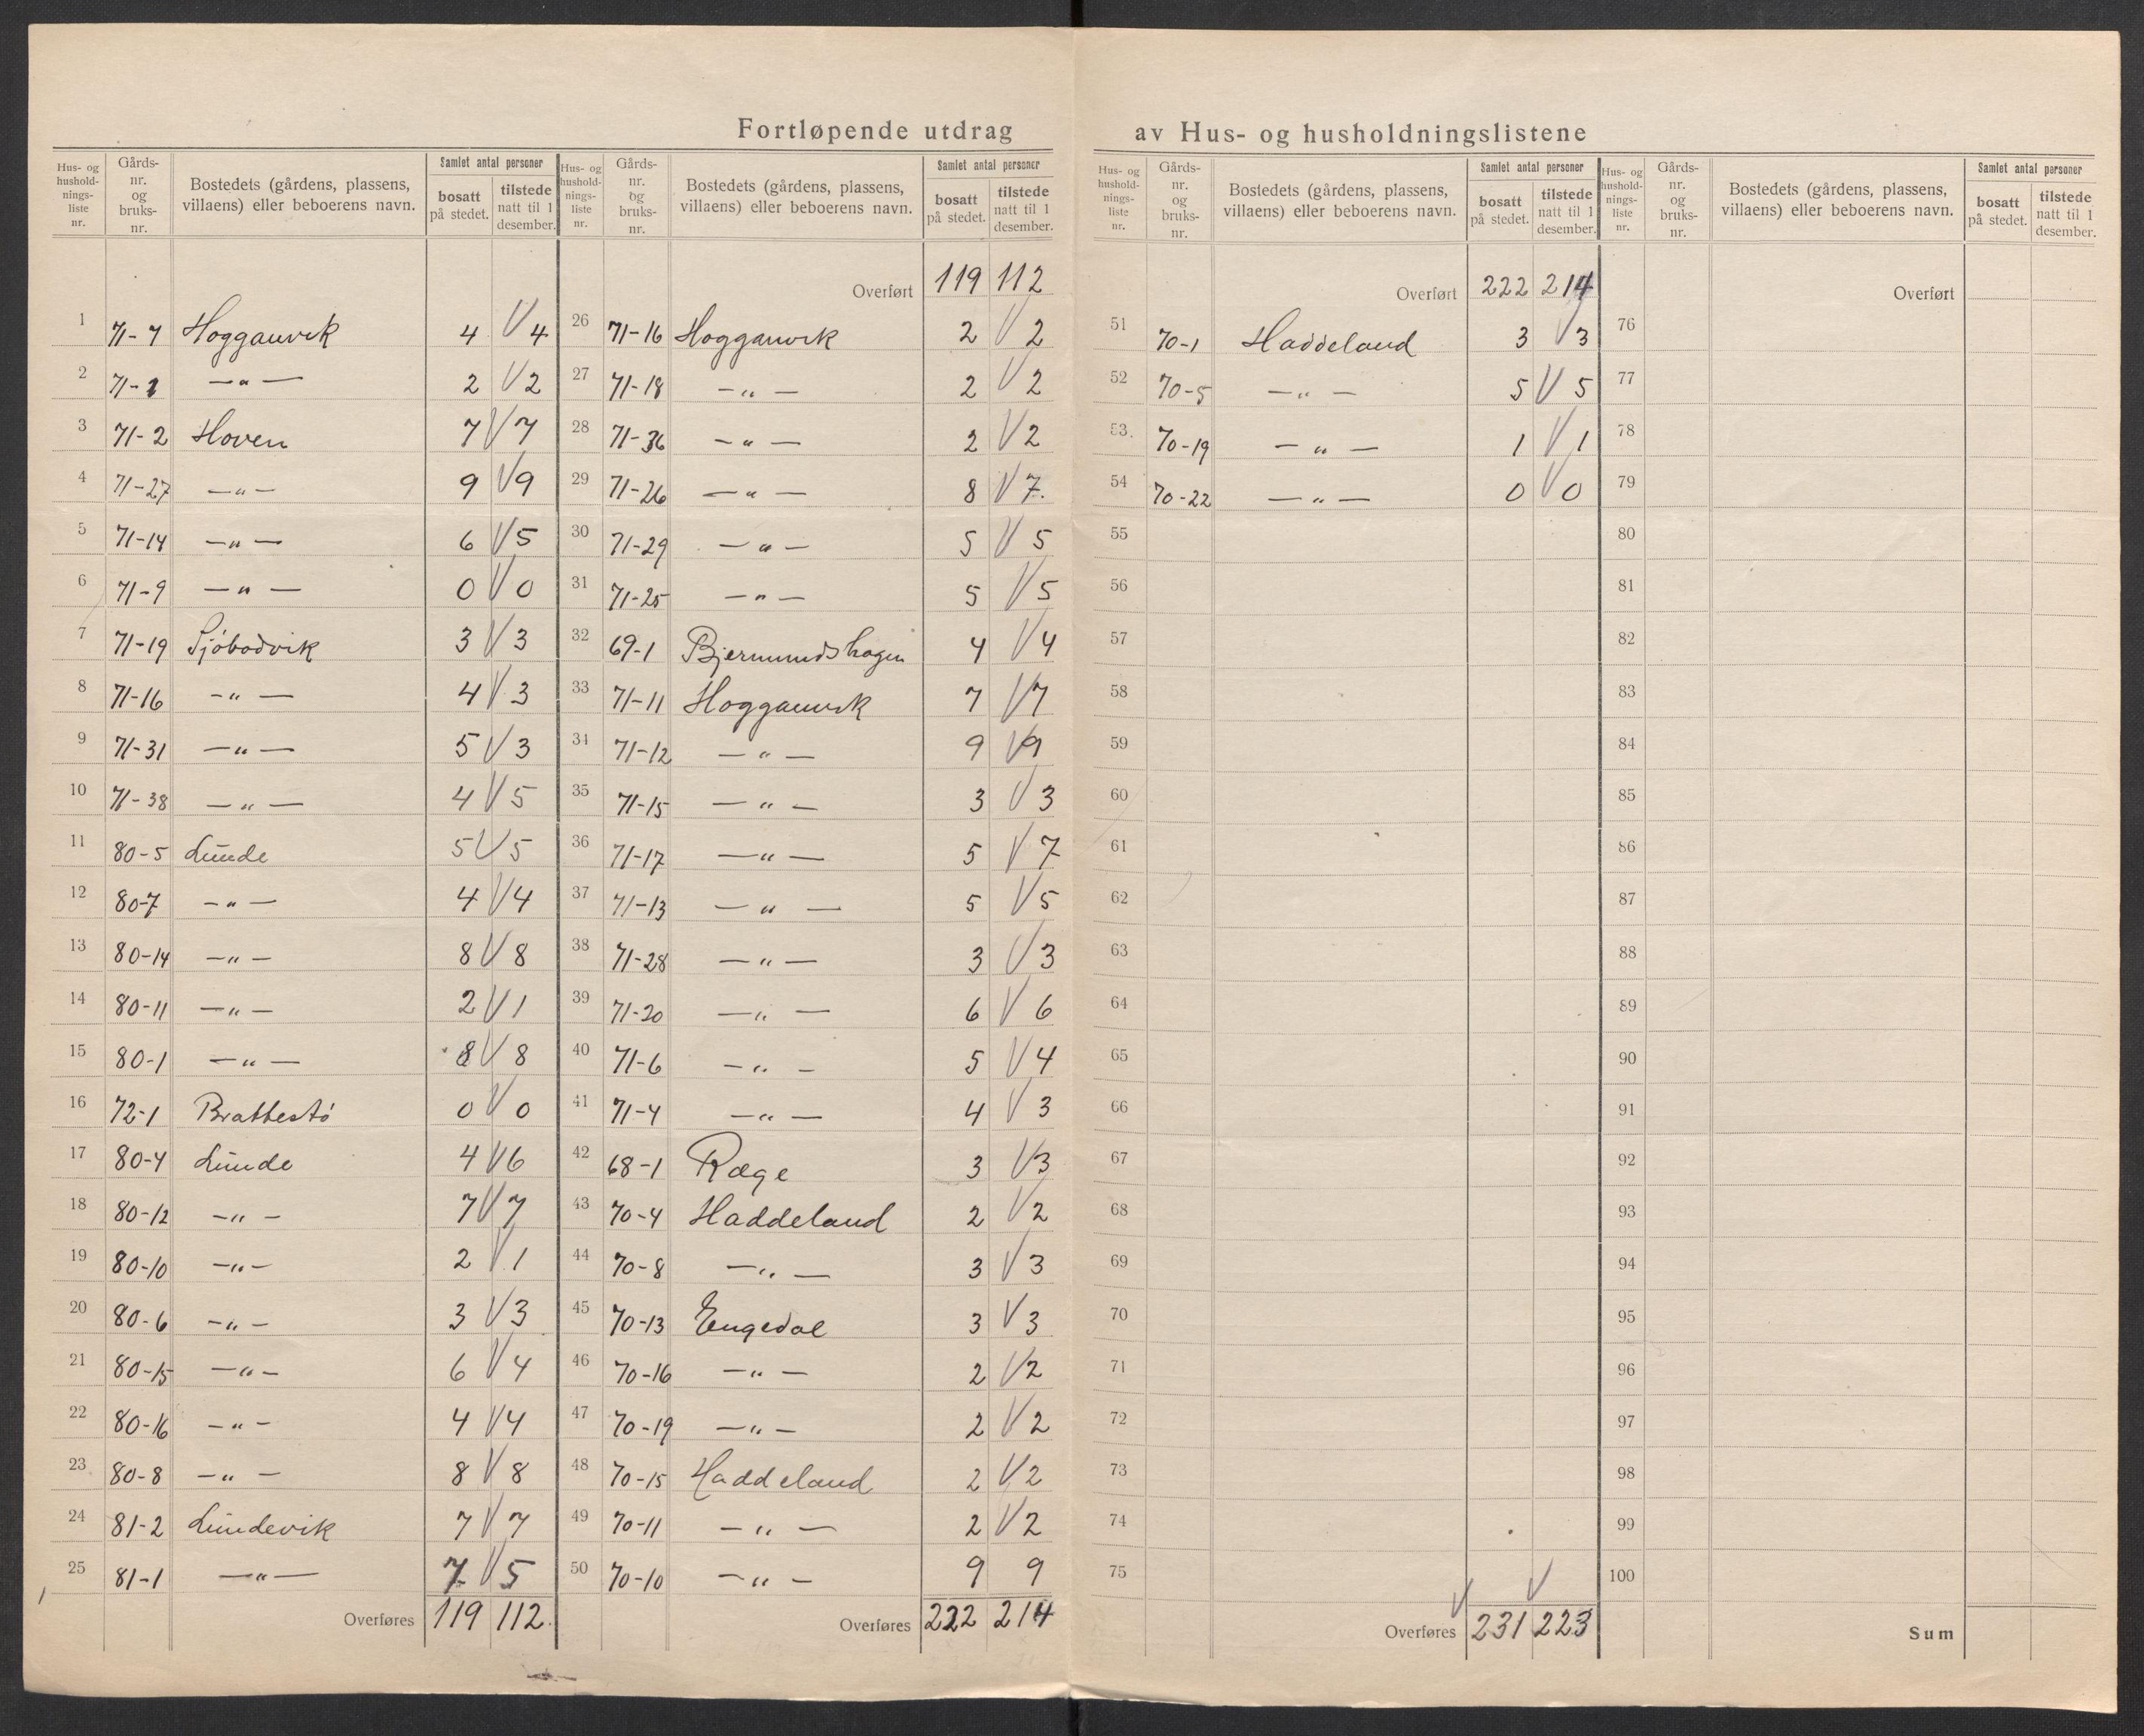 Fortløpende utdrag av Hus- og husholdningslistene
Hus- og hushold- nings- liste nr. | Gårds- nr. og bruks- nr. | Bostedets (gårdens, plassens, villaens) eller beboerens navn. | Samlet antal personer | bosatt på stedet. | tilstede natt til 1 desember.
1 71-7 Hogganvik 4 V 4
2 71-1 —"— 2 V 2
3 71-2 Hoven 7 V 7
4 71-27 —"— 9 V 9
5 71-14 —"— 6 V 5
6 71-9 —"— 0 V 0
7 71-19 Sjøbodvik 3 V 3
8 71-16 —"— 4 V 3
9 71-31 —"— 5 V 3
10 71-38 —"— 4 V 5
11 80-5 Lunde 5 V 5
12 80-7 —"— 4 V 4
13 80-14 —"— 8 V 8
14 80-11 —"— 2 V 1
15 80-1 —"— 8 V 8
16 72-1 Brattestø 0 V 0
17 80-4 Lunde 4 V 6
18 80-12 —"— 7 V 7
19 80-10 —"— 2 V 1
20 80-6 —"— 3 V 3
21 80-15 —"— 6 V 4
22 80-16 —"— 4 V 4
23 80-8 —"— 8 V 8
24 81-2 Lundevik 7 V 7
25 81-1 —"— 7 V 5
Overføres 119 112
Hus- og hushold- nings- liste nr. | Gårds- nr. og bruks- nr. | Bostedets (gårdens, plassens, villaens) eller beboerens navn. | Samlet antal personer | bosatt på stedet. | tilstede natt til 1 desember.
Overført 119 112
26 71-16 Hogganvik 2 V 2
27 71-18 —"— 2 V 2
28 71-36 —"— 2 V 2
29 71-26 —"— 8 V 7.
30 71-29 —"— 5 V 5
31 71-25 —"— 5 V 5
32 69-1 Bjermundshagen 4 V 4
33 71-11 Hogganvik 7 V 7
34 71-12 —"— 9 V 9
35 71-15 —"— 3 V 3
36 71-17 —"— 5 V 7
37 71-13 —"— 5 V 5
38 71-28 —"— 3 V 3
39 71-20 —"— 6 V 6
40 71-6 —"— 5 V 4
41 71-4 —"— 4 V 3
42 68-1 Ræge 3 V 3
43 70-4 Haddeland 2 V 2
44 70-8 —"— 3 V 3
45 70-13 Engedal 3 V 3
46 70-16 —"— 2 V 2
47 70-19 —"— 2 V 2
48 70-15 Haddeland 2 V 2
49 70-11 —"— 2 V 2
50 70-10 —"— 9 9
Overføres 222 214
Hus- og hushold- nings- liste nr. | Gårds- nr. og bruks- nr. | Bostedets (gårdens, plassens, villaens) eller beboerens navn. | Samlet antal personer | bosatt på stedet. | tilstede natt til 1 desember.
Overført 222 214
51 70-1 Haddeland 3 V 3
52 70-5 —"— 5 V 5
53. 70-19 —"— 1 V 1
54 70-22 —"— 0 V 0
55
56
57
58
59
60
61
62
63
64
65
66
67
68
69
70
71
72
73
74
75 V V
Overføres 231 223
Hus- og hushold- nings- liste nr. | Gårds- nr. og bruks- nr. | Bostedets (gårdens, plassens, villaens) eller beboerens navn. | Samlet antal personer | bosatt på stedet. | tilstede natt til 1 desember.
Overført
76
77
78
79
80
81
82
83
84
85
86
87
88
89
90
91
92
93
94
95
96
97
98
99
100
Sum